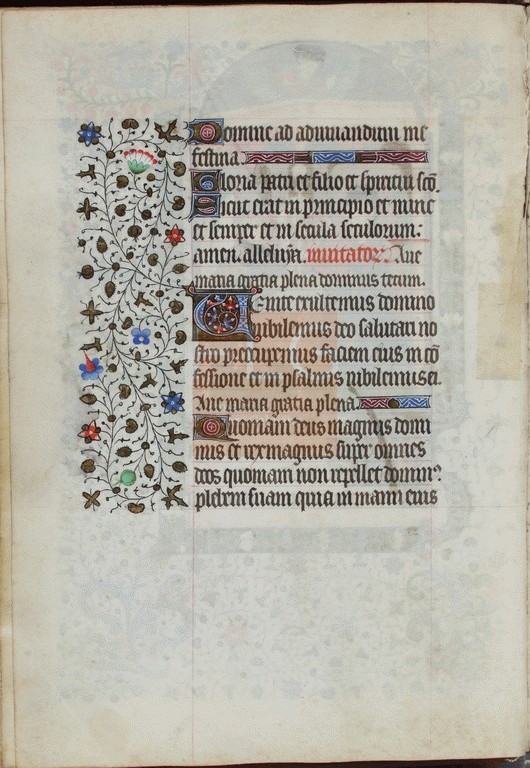 Domine ad adiuuandum me
festina.
Gloria patri et filio et spiritui sc̄o.
Sicut erat in principio et nunc
et semper et in secula seculorum.
amen. alleluya. inuitator. Aue
maria gratia plena dominus tecum.
Venite exultemus domino
iubilemus deo salutari no
stro preocupemus faciem eius in cō
fessione et in psalmis iubilemus ei.
Aue maria gratia plena.
Quoniam deus magnus domi
nus et rex magnus super omnes
deos quoniam non repellet dominus
plebem suam quia in manu eius